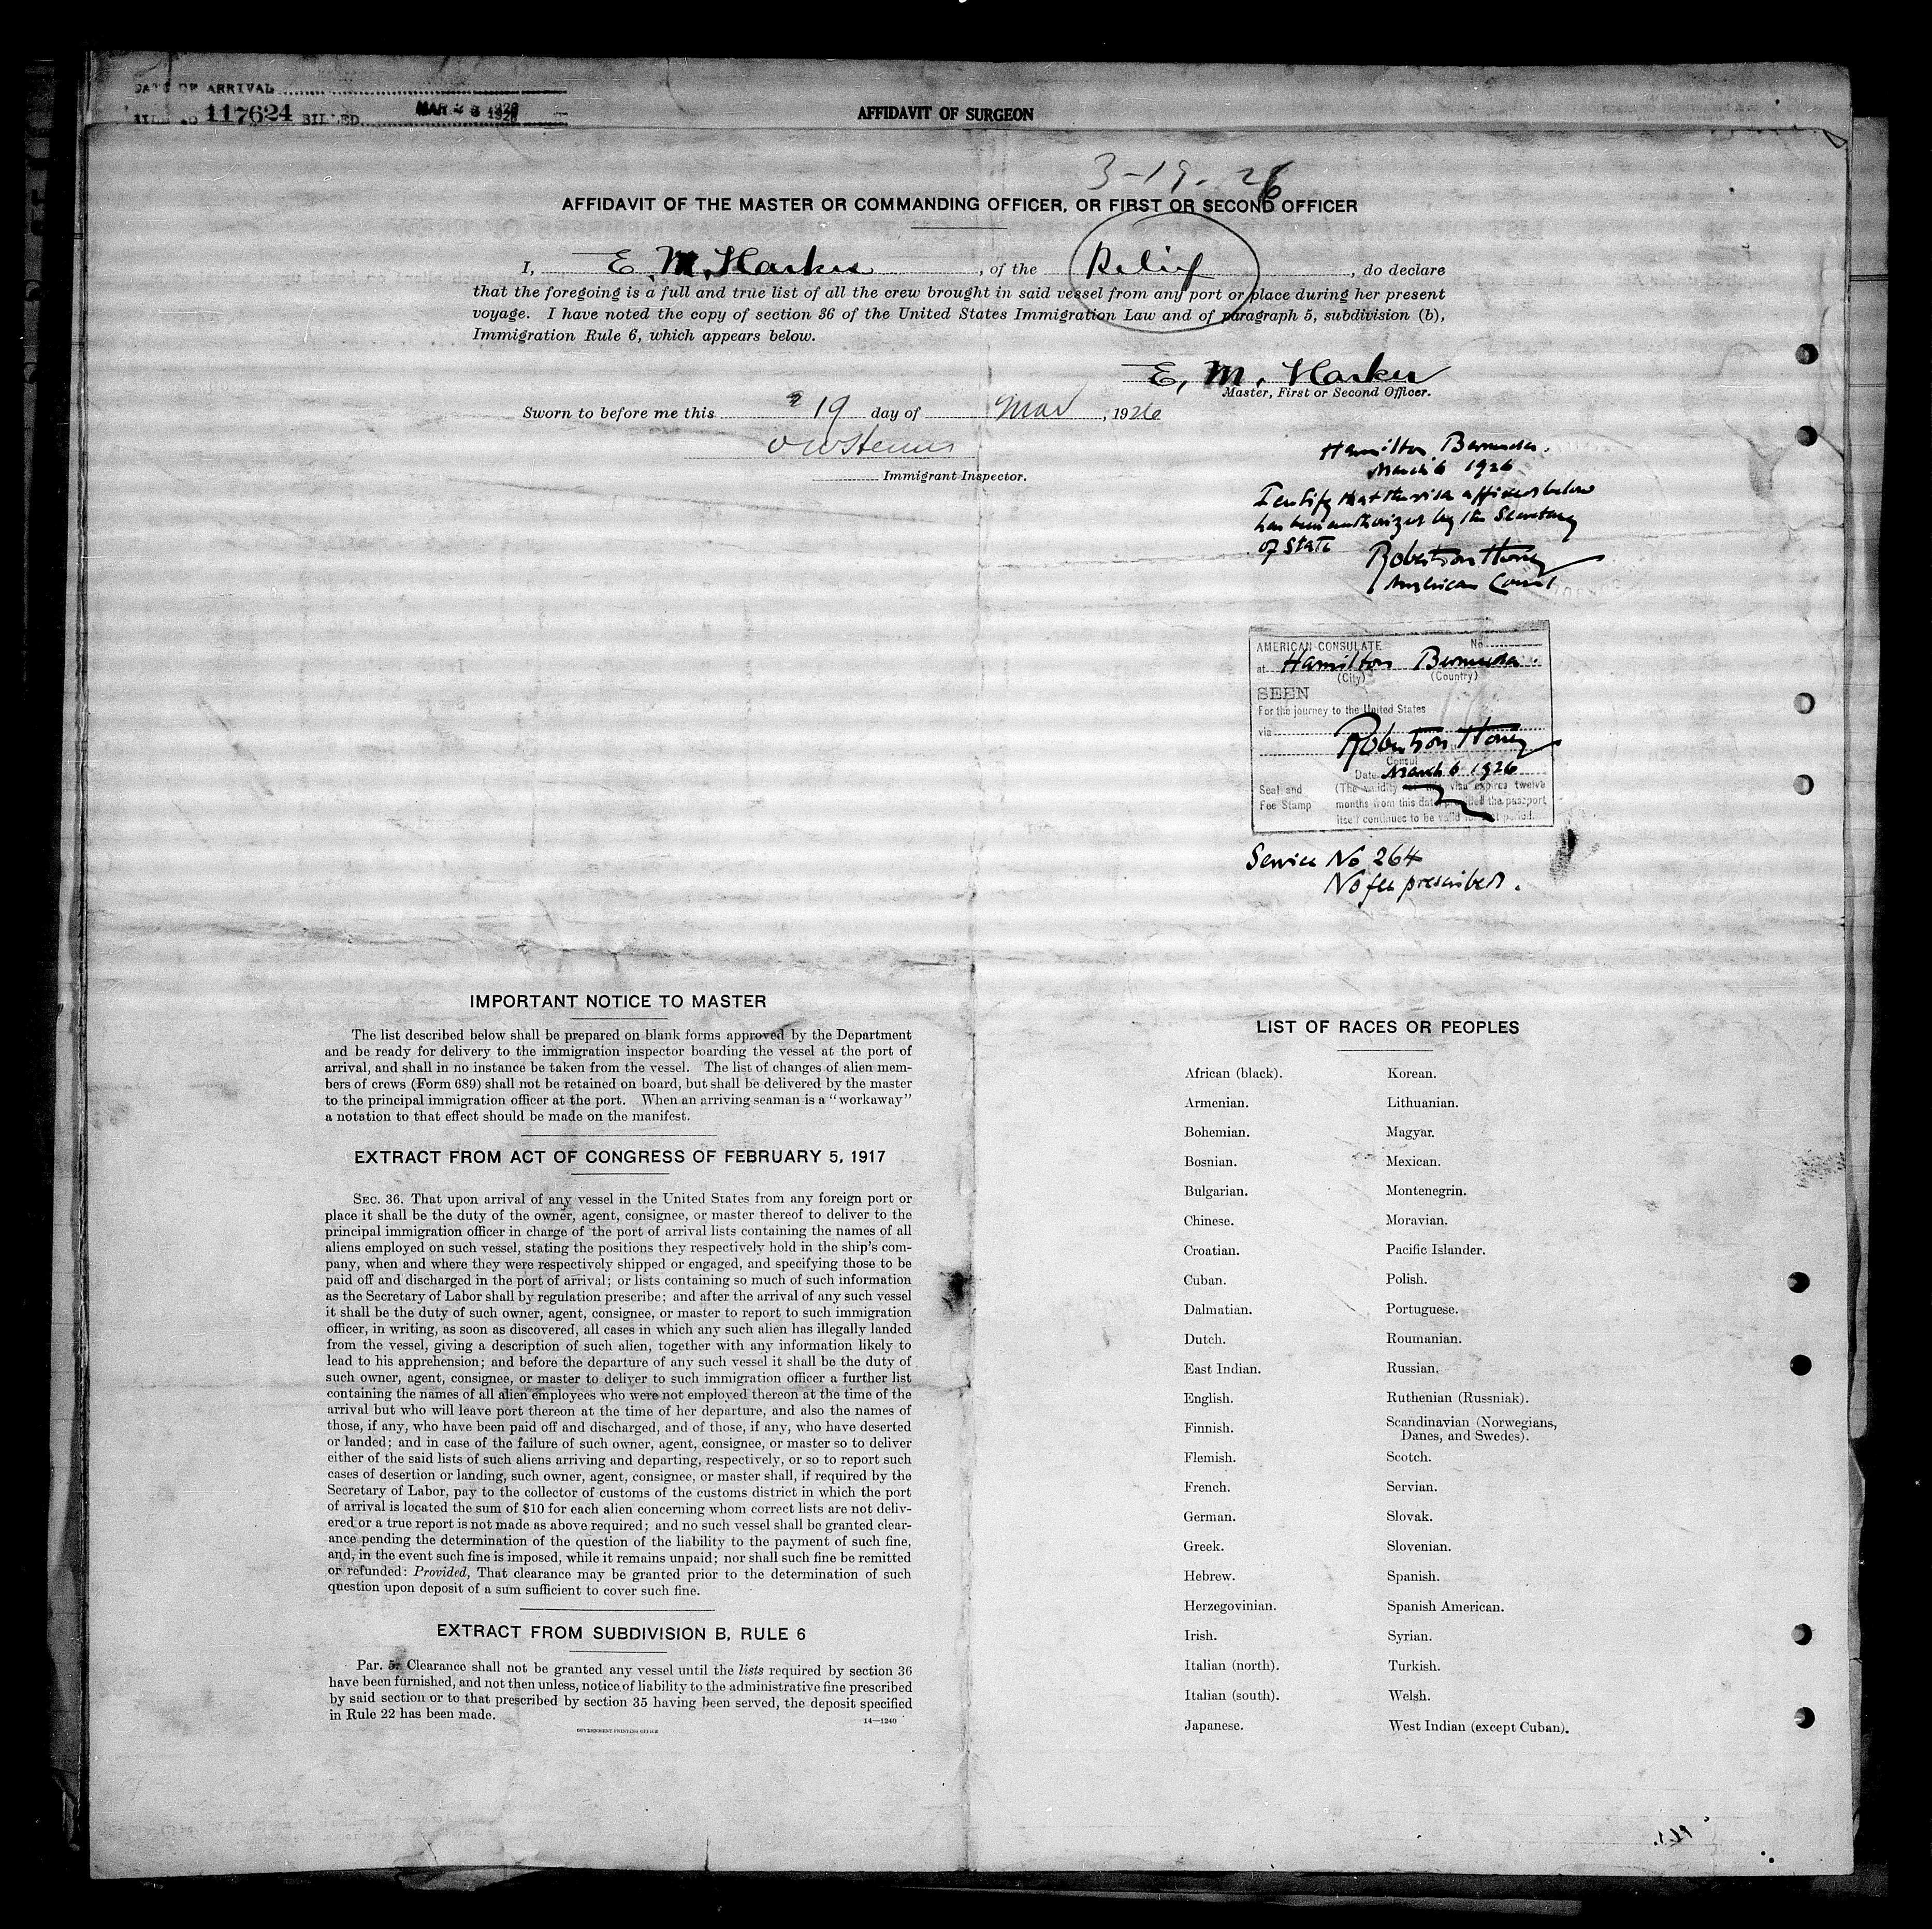 DATE OF ARRIVAL
117624 BILLED MAR 1926
AFFIDAVIT OF SURGEON
3-19-26
AFFIDAVIT OF THE MASTER OR COMMANDING OFFICER, OR FIRST OR SECOND OFFICER
I, E. M. Harker, of the Relief, do declare
that the foregoing is a full and true list of all the crew brought in said vessel from any port or place during her present
voyage. I have noted the copy of section 36 of the United States Immigration Law and of paragraph 5, subdivision (b),
Immigration Rule 6, which appears below.
E. M. Harker
Master, First or Second Officer.
Sworn to before me this 19 day of Mar, 1926
Immigrant Inspector.
Hamilton Bermuda.
March 6 1926
I certify that the visa affixed below
has been authorized by the Secretary
of State
Robertson Honey
American Consul
AMERICAN CONSULATE No.
at Hamilton Bermuda.
(City) (Country)
SEEN
For the journey to the United States
via
Robertson Honey
Consul
Date March 6 1926
Seal and (The validity of this visa expires twelve
Fee Stamp months from this date provided the passport
itself continues to be valid for that period.
Service No 264
No fee prescribed.
IMPORTANT NOTICE TO MASTER
The list described below shall be prepared on blank forms approved by the Department
and be ready for delivery to the immigration inspector boarding the vessel at the port of
arrival, and shall in no instance be taken from the vessel. The list of changes of alien mem-
bers of crews (Form 689) shall not be retained on board, but shall be delivered by the master
to the principal immigration officer at the port. When an arriving seaman is a "workaway"
a notation to that effect should be made on the manifest.
EXTRACT FROM ACT OF CONGRESS OF FEBRUARY 5, 1917
SEC. 36. That upon arrival of any vessel in the United States from any foreign port or
place it shall be the duty of the owner, agent, consignee, or master thereof to deliver to the
principal immigration officer in charge of the port of arrival lists containing the names of all
aliens employed on such vessel, stating the positions they respectively hold in the ship's com-
pany, when and where they were respectively shipped or engaged, and specifying those to be
paid off and discharged in the port of arrival; or lists containing so much of such information
as the Secretary of Labor shall by regulation prescribe; and after the arrival of any such vessel
it shall be the duty of such owner, agent, consignee, or master to report to such immigration
officer, in writing, as soon as discovered, all cases in which any such alien has illegally landed
from the vessel, giving a description of such alien, together with any information likely to
lead to his apprehension; and before the departure of any such vessel it shall be the duty of
such owner, agent, consignee, or master to deliver to such immigration officer a further list
containing the names of all alien employees who were not employed thereon at the time of the
arrival but who will leave port thereon at the time of her departure, and also the names of
those, if any, who have been paid off and discharged, and of those, if any, who have deserted
or landed; and in case of the failure of such owner, agent, consignee, or master so to deliver
either of the said lists of such aliens arriving and departing, respectively, or so to report such
cases of desertion or landing, such owner, agent, consignee, or master shall, if required by the
Secretary of Labor, pay to the collector of customs of the customs district in which the port
of arrival is located the sum of $10 for each alien concerning whom correct lists are not deliv-
ered or a true report is not made as above required; and no such vessel shall be granted clear-
ance pending the determination of the question of the liability to the payment of such fine,
and, in the event such fine is imposed, while it remains unpaid; nor shall such fine be remitted
or refunded: Provided, That clearance may be granted prior to the determination of such
question upon deposit of a sum sufficient to cover such fine.
EXTRACT FROM SUBDIVISION B, RULE 6
Par. 5. Clearance shall not be granted any vessel until the lists required by section 36
have been furnished, and not then unless, notice of liability to the administrative fine prescribed
by said section or to that prescribed by section 35 having been served, the deposit specified
in Rule 22 has been made.
14—1240
GOVERNMENT PRINTING OFFICE
LIST OF RACES OR PEOPLES
African (black). Korean.
Armenian. Lithuanian.
Bohemian. Magyar.
Bosnian. Mexican.
Bulgarian. Montenegrin.
Chinese. Moravian.
Croatian. Pacific Islander.
Cuban. Polish.
Dalmatian. Portuguese.
Dutch. Roumanian.
East Indian. Russian.
English. Ruthenian (Russniak).
Finnish. Scandinavian (Norwegians,
Danes, and Swedes).
Flemish. Scotch.
French. Servian.
German. Slovak.
Greek. Slovenian.
Hebrew. Spanish.
Herzegovinian. Spanish American.
Irish. Syrian.
Italian (north). Turkish.
Italian (south). Welsh.
Japanese. West Indian (except Cuban).